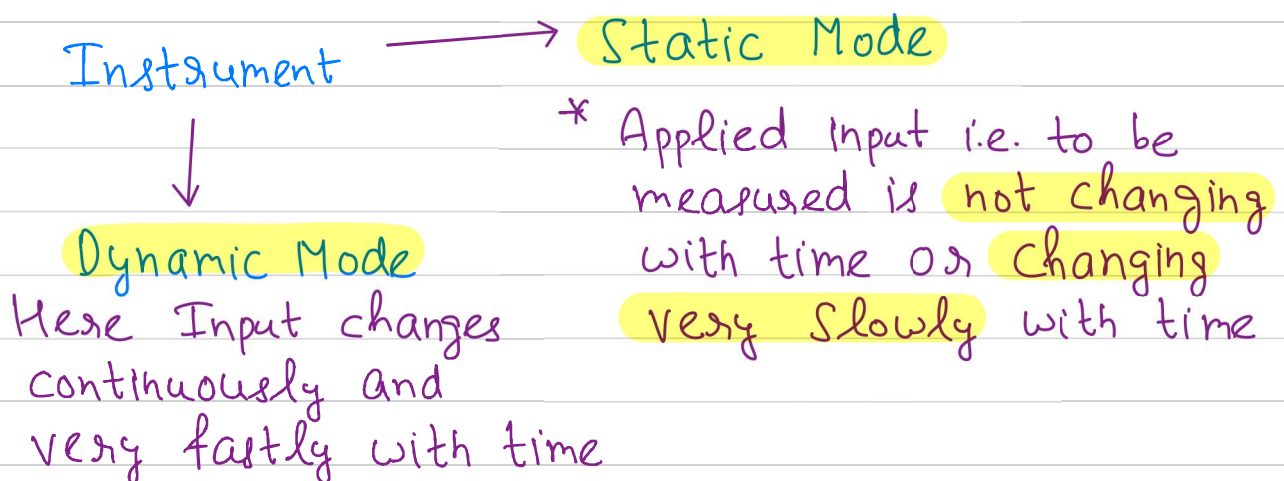 Instrument → Static Mode
* Applied Input i.e. to be
measured is not changing
with time or changing
very slowly with time
Dynamic Mode
Here Input changes
continuously and
very fastly with time